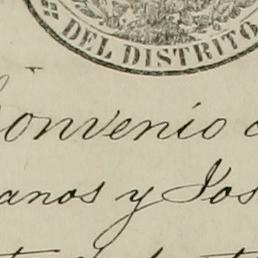 DEL DISTRITO
Convenio
anos y Jos